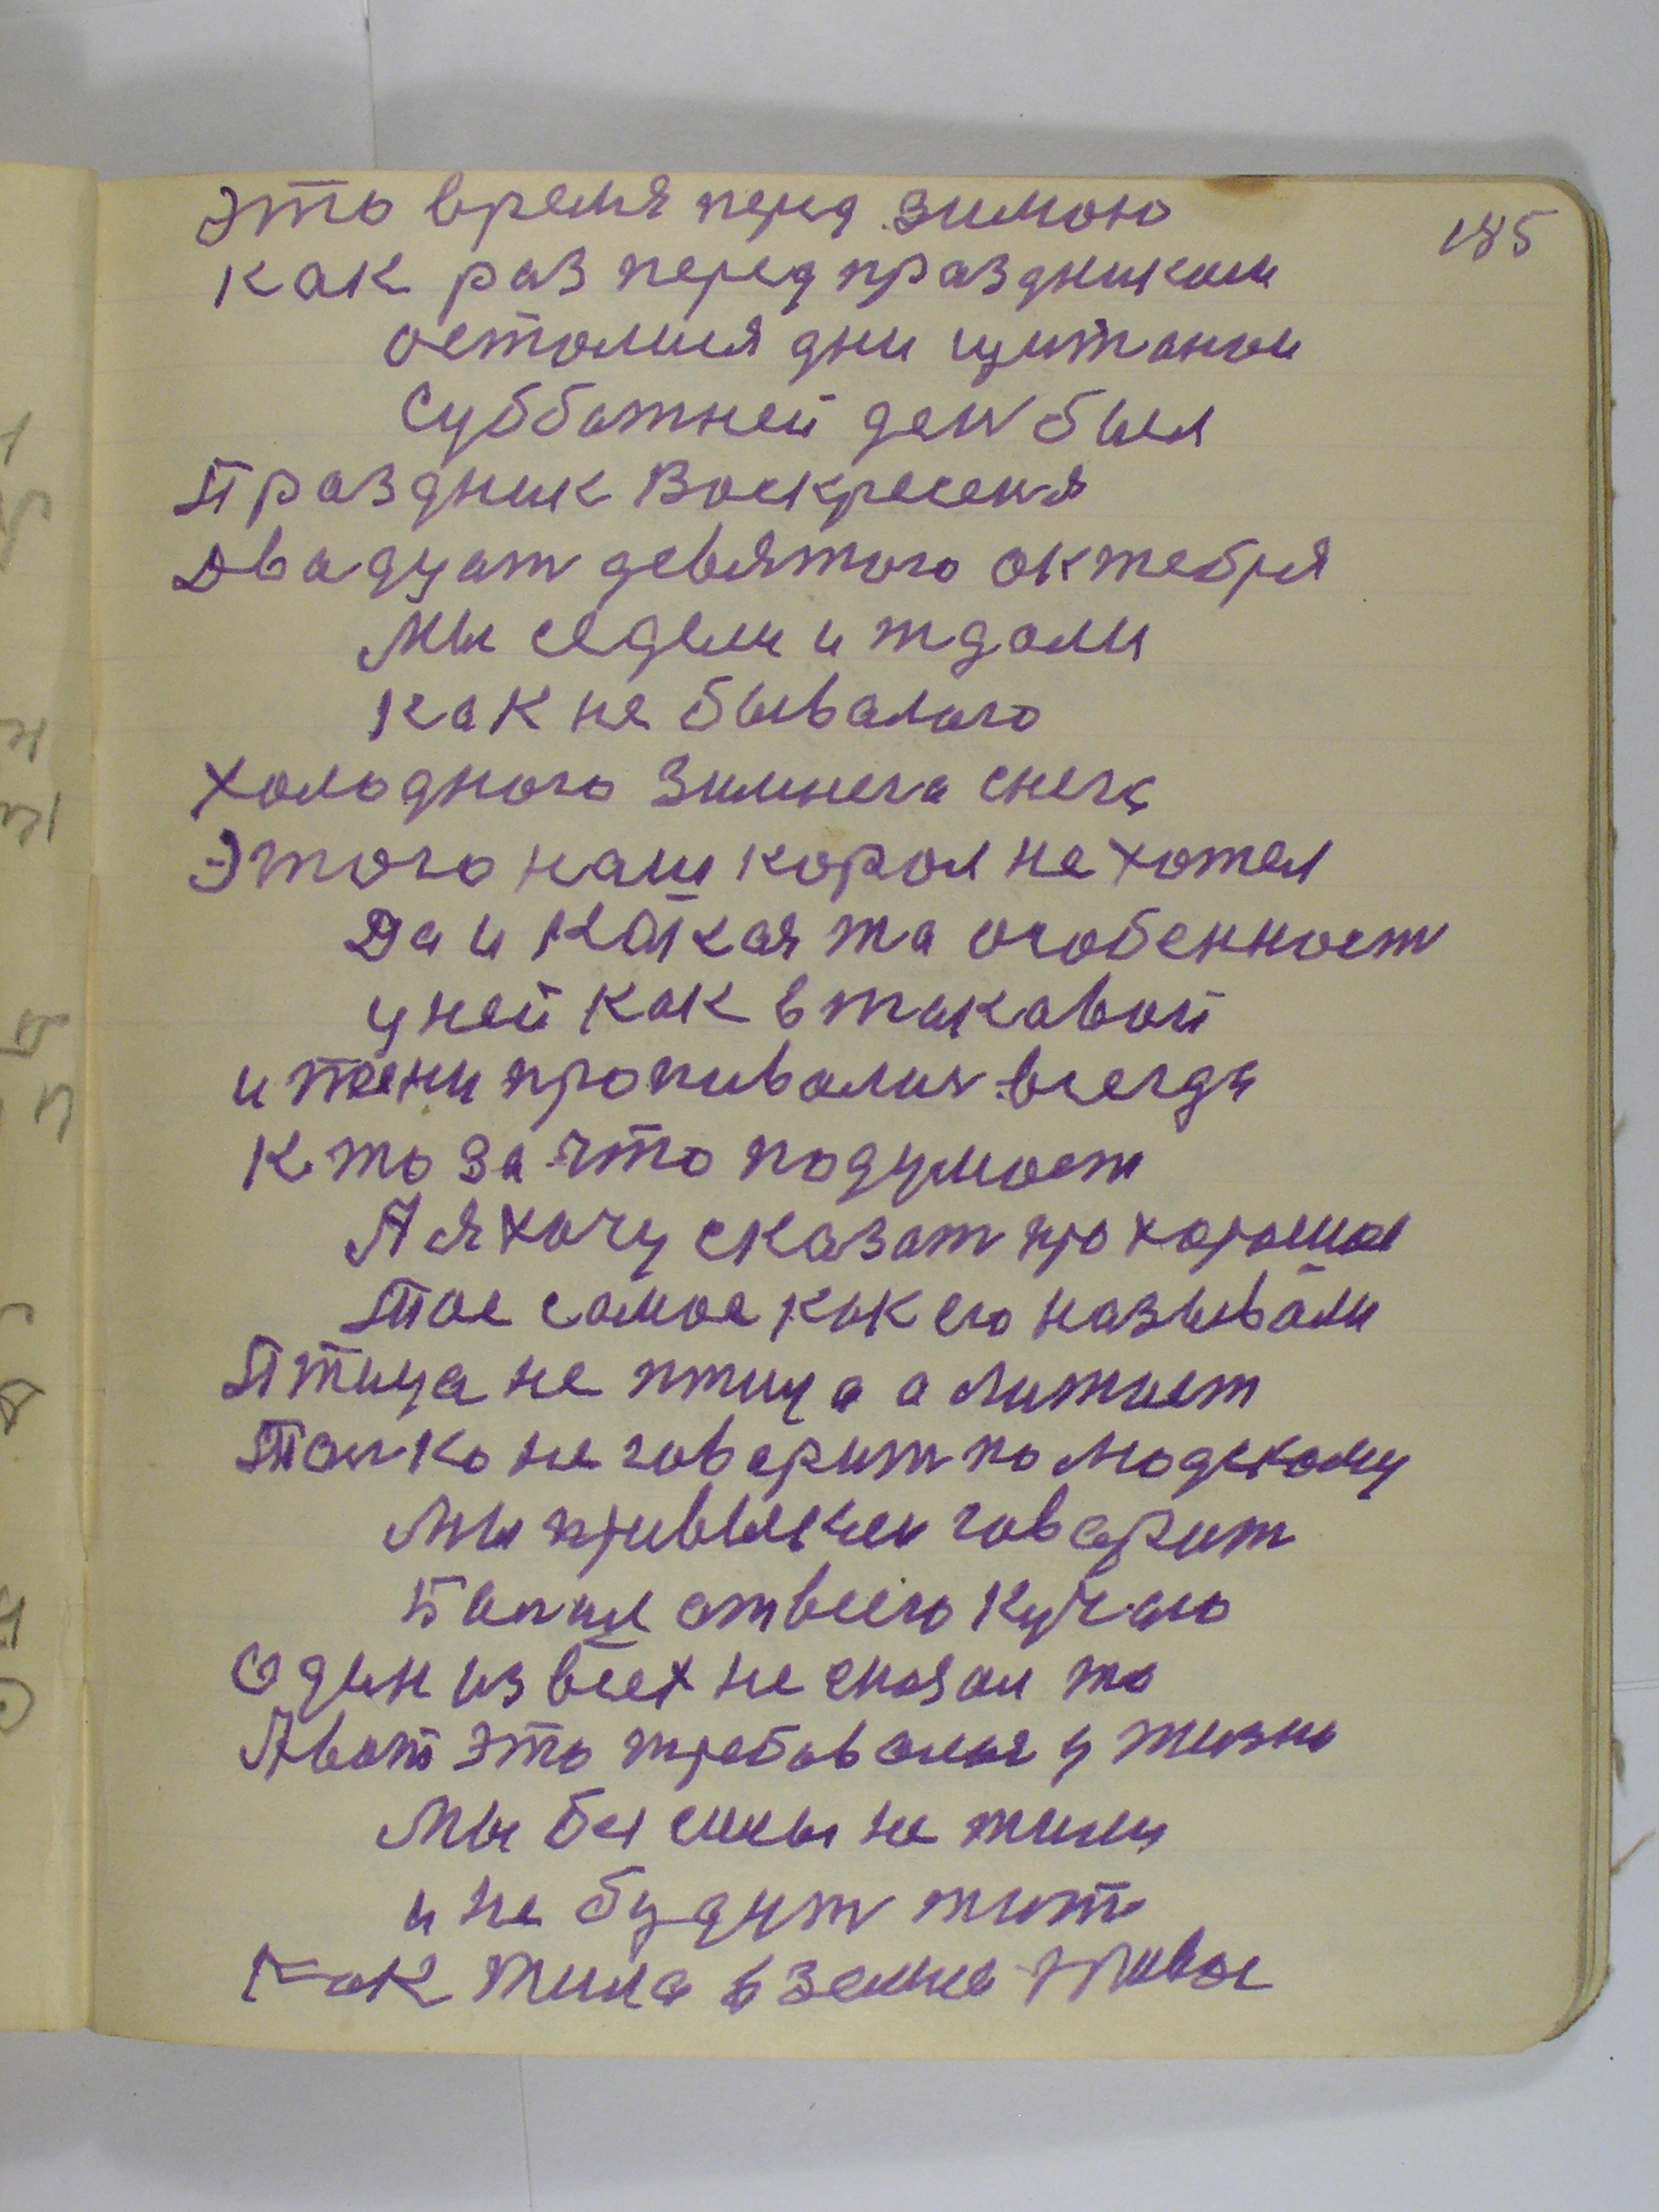 185
Это время перед зимою
как раз перед праздником
остолися дни щитаном
Субботней ден был
Праздник Воскресеня
Двадцат девятого октебря
Мы седели и ждали
как не бывалого
холодного зимнега снега
Этого наш корол не хотел
Да и какая та особенност
у ней как в такавой
и тени пропивалис всегда
Кто за что подумает
А я хочу сказат про хорошое
Тое самое как его называли
Птица не птица а литает
Толко не говорит по людскому
Мы привыкли говорит
от всего
Один из всех не сказал та
А вот это требовалося у жизни
Мы без силы не жили
и не будим жит
Как жила в земле